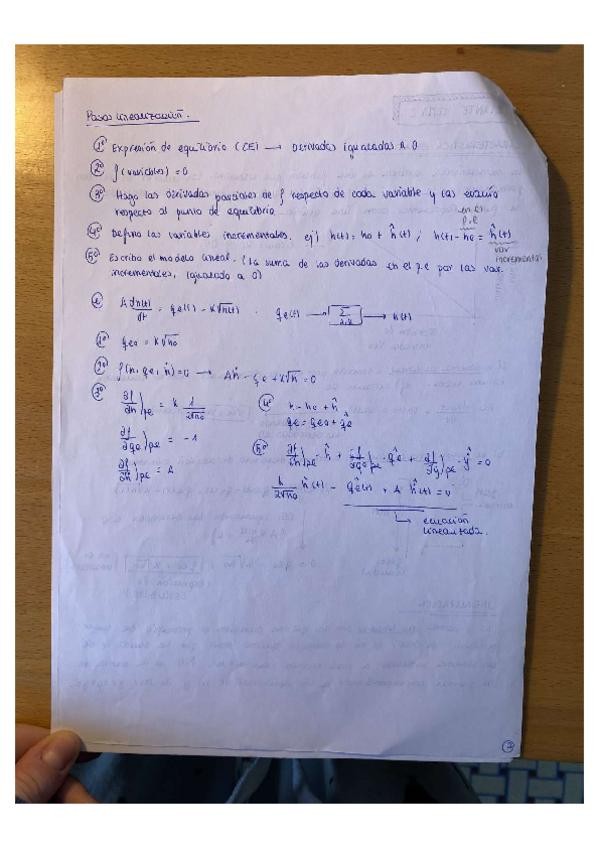 Pasos linealización.
1º Expresión de equilibrio (EE) → Derivadas igualadas a 0
2º f(variables) = 0
3º Hago las derivadas parciales de f respecto de cada variable y las evalúo
respecto al punto de equilibrio
en el
p.e
4º Defino las variables incrementales. ej) h(t) = h0 + ĥ(t) ; h(t) - he = ĥ(t)
var
incremental
5º Escribo el modelo lineal. (La suma de las derivadas en el p.e por las var.
incrementales, igualado a 0)
A dh(t)/dt = qe(t) - K√h(t) . qe(t) → Σ → h(t)
1º qe0 = K√h0
2º f(h, qe, ḣ) = 0 → Aḣ - qe + K√h = 0
3º ∂f/∂h)pe = K 1/2√h0
∂f/∂qe)pe = -1
∂f/∂ḣ)pe = A
4º h = h0 + ĥ
qe = qe0 + q̂e
5º ∂f/∂h)pe · ĥ + ∂f/∂qe)pe · q̂e + ∂f/∂ẏ)pe · ŷ = 0
K/2√h0 ĥ(t) - q̂e(t) + A ĥ(t) = 0
→ ecuación
linealizada.
2